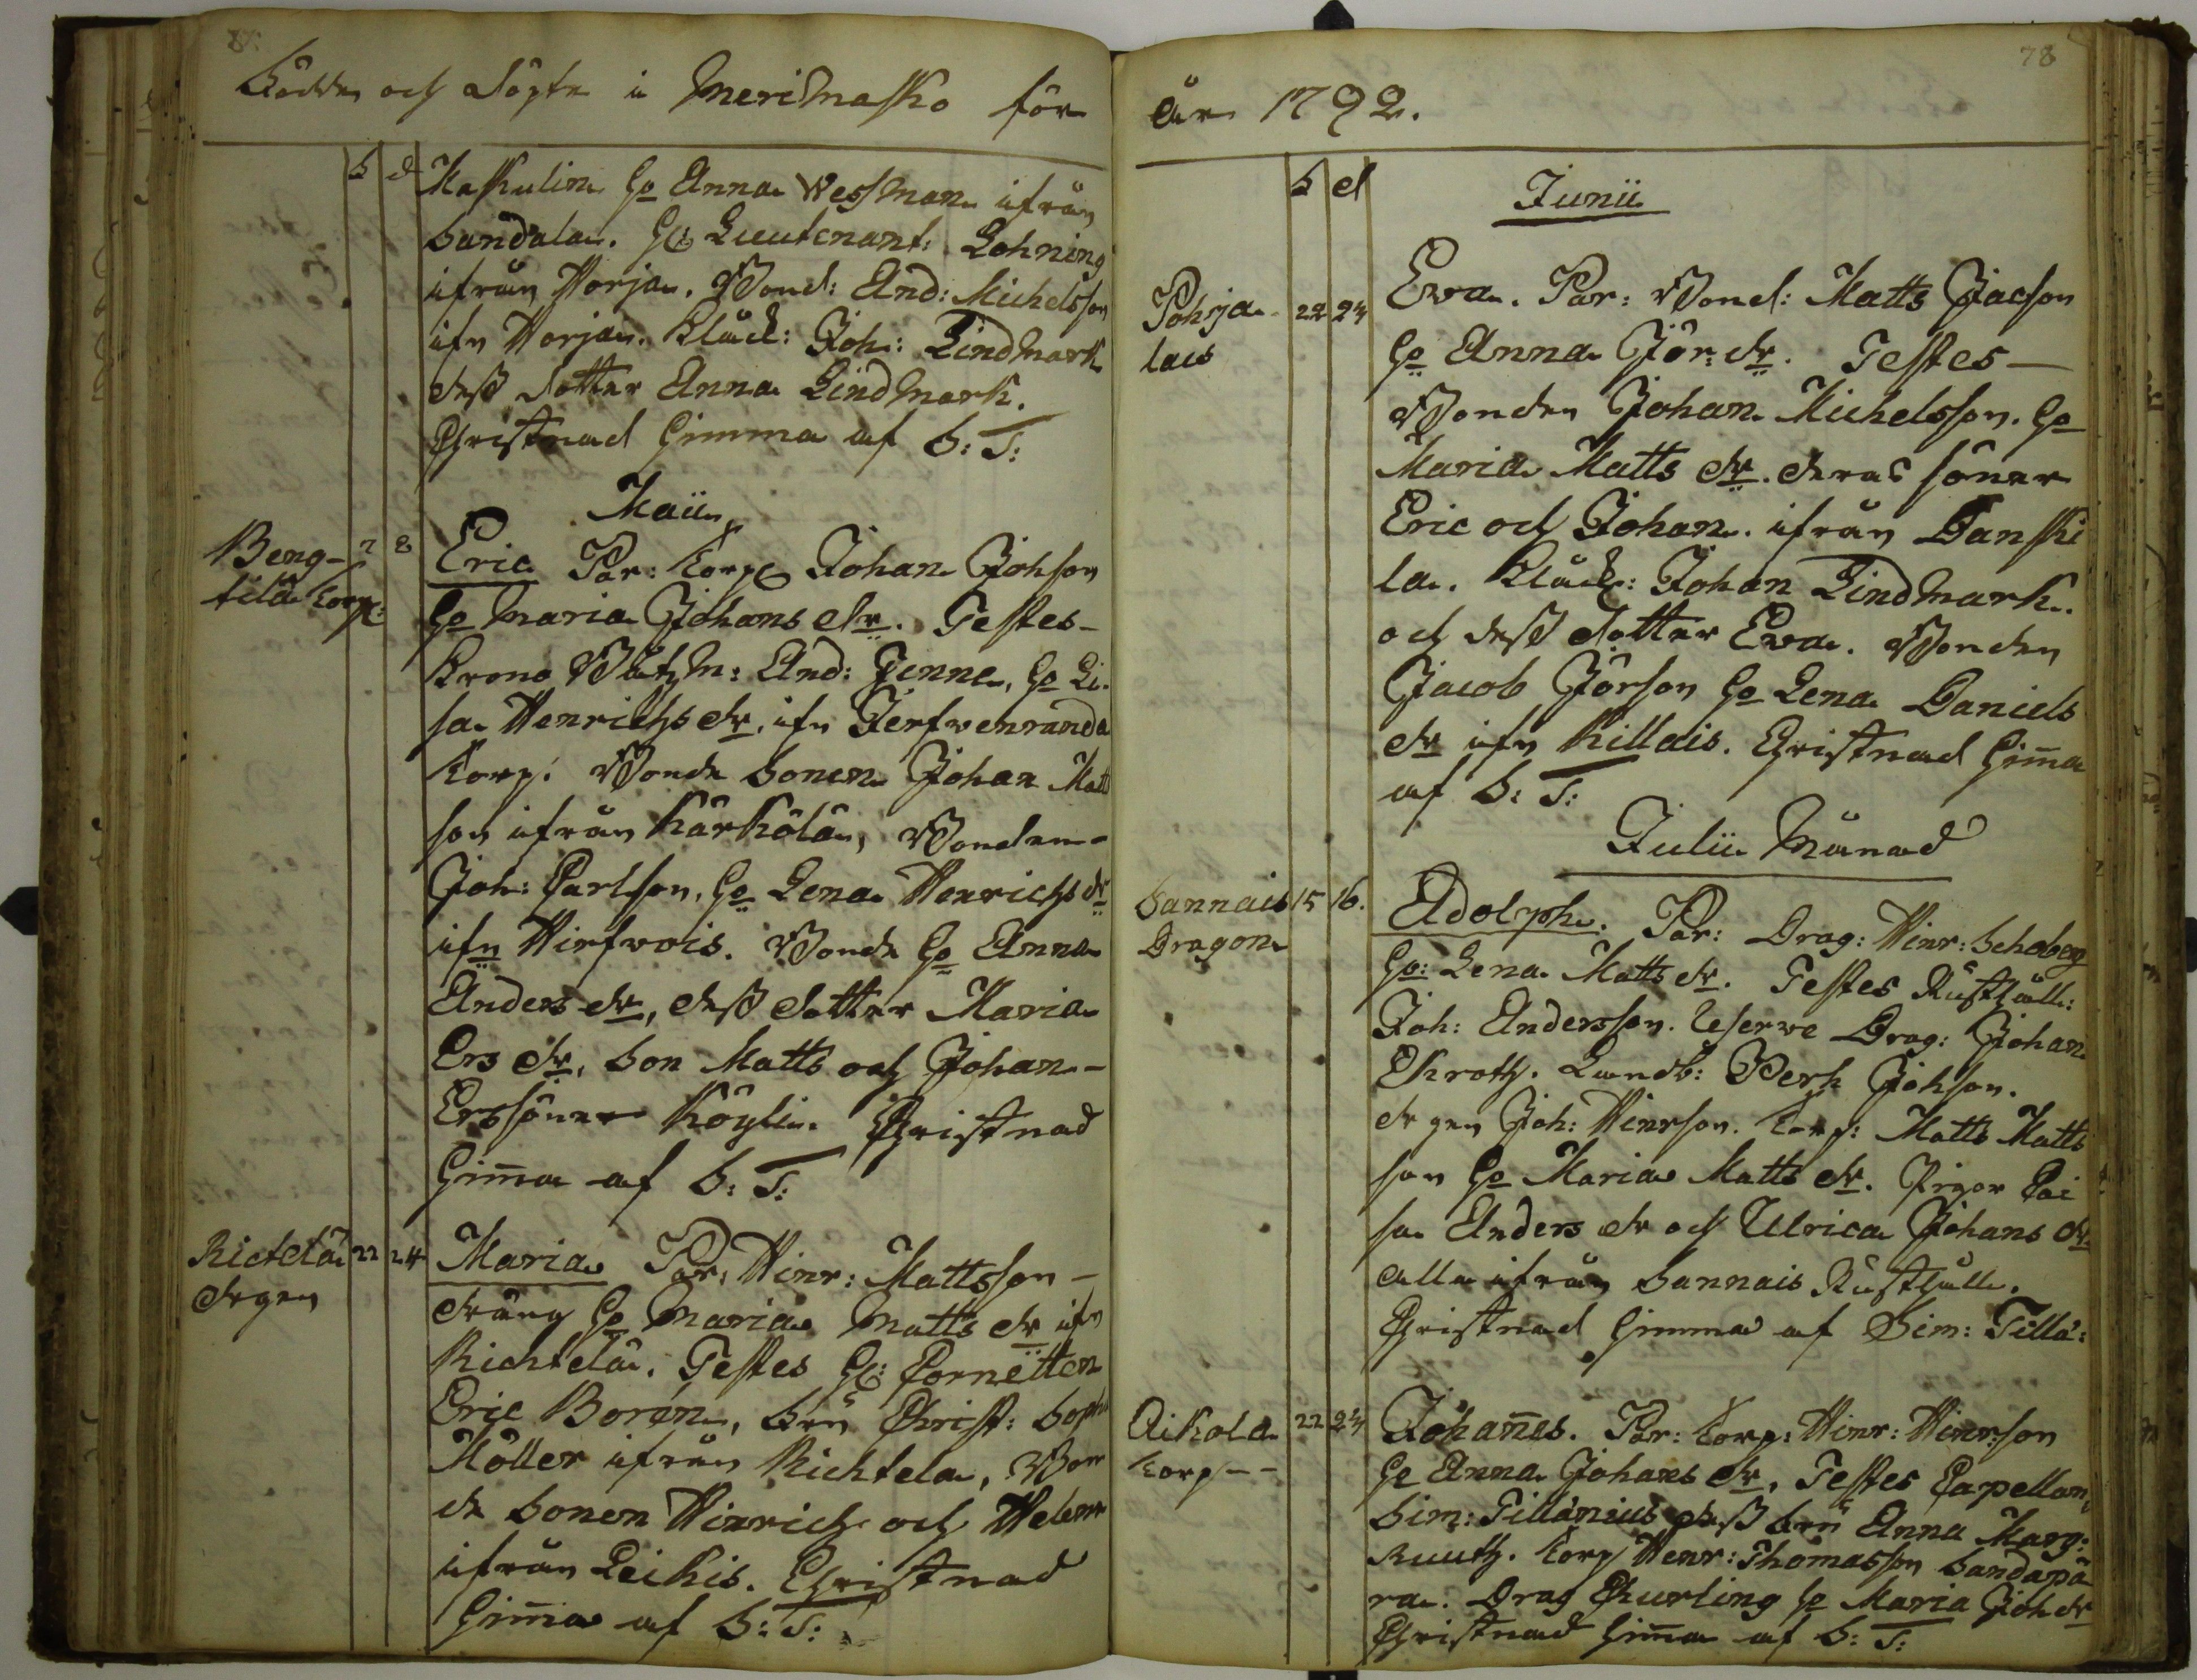 Födde och Döpte i Merimasko för
år 1792.
78
b d
Maskulin ho Anna Wessman ifrån
Sandala. Hr Lieutenant: Lohning
ifrån Horja. Bond: And: Michelsson
ifn Horja. Klåck: Joh: Lindmark
dess dotter Anna Lindmark.
Christnad hemma af S: T:
Maii
Beng-
tilä torp:
7 8
Eric Par: torp Johan Johson
ho Maria Johans dr. Testes-
Krono Båtzm: And: Jenne, ho Li-
sa Henrichs dr, ifn Jerfwenranda
torp. Bonde Sonen Johan Matts
son ifrån Kärkölä, Bonden-
Joh: Carlson, ho Lena Henrichs dr
ifn Hirfwois. Bonde ho Anna
Anders dr, dess dotter Maria
Ers dr, Son Matts och Johan-
Erssöner Köyli. Christnad
hemma af S: T:
Rictelä
drgen
22 24
Maria Par: Hinr: Mattsson-
dräng ho Maria Matts dr ifn
Richtelä. Testes Hr: Cornetten
Eric Borén, fru Christ: Soph
Möller ifrån Richtela, Bon
de Sonen Hinrich och Helena
ifrån Leikis. Christnad
hemma af S: T:
b d
Junii
Pohja-
lais
22 24
Eva. Par: Bond: Matts Jacson
ho Anna Jör: dr. Testes-
Bonden Johan Michelsson. ho
Maria Matts dr. deras söner
Eric och Johan. ifrån Danski
la. Klåck: Johan Lindmark.
och dess dotter Eva. Bonden
Jacob Jörson ho Lena Daniels
dr ifn Killais. Christnad hemma
af S: T:
Julii Månad
Sannais
Dragon
15 16.
Adolph. Par: Drag: Hinr: Schoberg
ho: Lena Matts dr. Testes Rusthåll:
Joh: Andersson. Reserve Drag: Johan
Ekroth. Landb: Perh Johson.
drgen Joh: Hinrson. torp: Matts Matts
son ho Maria Matts dr. Pigor Cai
sa Anders dr och Ulrica Johans dr
alla ifrån Sannais Rusthåll.
Christnad hemma af Sim: Tillä:
Aikola
torp--
22 24
Johannes. Par: torp: Hinr: Hinrson
ho Anna Johans dr, Testes Capellan
Sim: Tillänius dess fru Anna Marg:
Ruuth. torp Henr: Thomasson Sandapä
ra. Drag Churling ho Maria Joh dr
Christnad hemma af S: T: